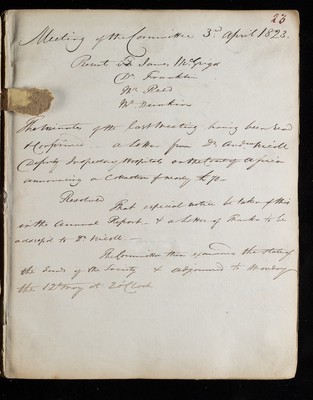 23
Meeting of the Committee 3d. April 1823.
Present Sr. James McGrigor
Dr. Franklin
Mr. Reid
Mr.
The Minutes of the last Meeting having been read
& Confirmed — a letter from Dr. Andw. Nicoll
Deputy Inspector of Hospitals on the Coast of Africa
announcing a Collection of nearly £70 —
Resolved
That especial notice be taken of this
in the Annual Report — & a letter of thanks to be
addres'd to Dr. Nicoll —
The Committee then examined the state of
the funds of the Society & adjourned to Monday
the 12th May at 2 o'Clock